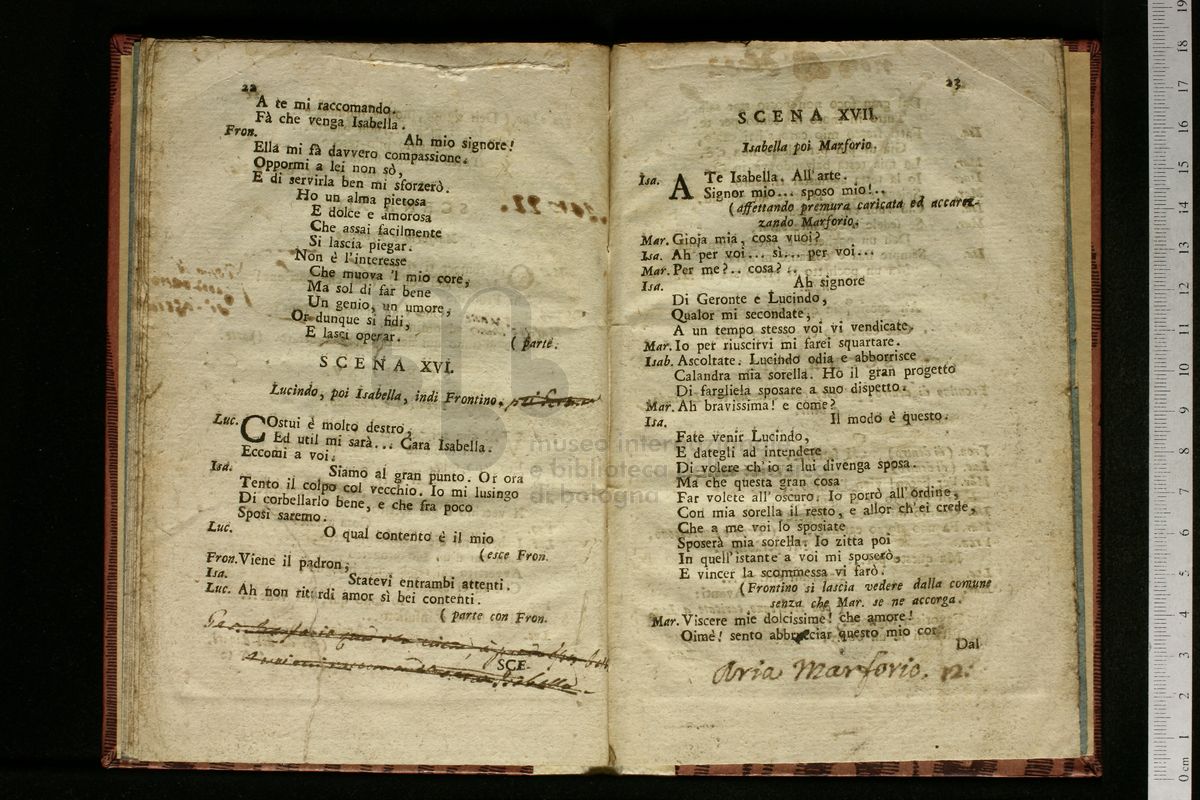 22
A te mi raccomando.
Fà che venga Isabella.
Fron. Ah mio signore!
Ella mi fà davvero compassione.
Oppormi a lei non sò,
E di servirla ben mi sforzerò.
Ho un alma pietosa
E dolce e amorosa
Che assai facilmente
Si lascia piegar.
Non è l'interesse
Che muova 'l mio core,
Ma sol di far bene
Un genio, un umore,
Or dunque si fidi,
E lasci operar.
( parte.
SCENA XVI.
Lucindo, poi Isabella, indi Frontino,
Luc. COstui è molto destro,
Ed util mi sarà... Cara Isabella.
Eccomi a voi.
Isa. Siamo al gran punto. Or ora
Tento il colpo col vecchio. Io mi lusingo
Di corbellarlo bene, e che fra poco
Sposi saremo.
Luc. O qual contento è il mio
(esce Fron.
Fron. Viene il padron,
Isa. Statevi entrambi attenti.
Luc. Ah non ritardi amor sì bei contenti.
( parte con Fron.
SCE-
23
SCENA XVII.
Isabella poi Marforio.
Isa. A Te Isabella. All'arte.
Signor mio... sposo mio!..
(affettando premura caricata ed accarez-
zando Marforio.
Mar. Gioja mia, cosa vuoi?
Isa. Ah per voi... sì... per voi...
Mar. Per me?.. cosa?..
Isa. Ah signore
Di Geronte e Lucindo,
Qualor mi secondate,
A un tempo stesso voi vi vendicate.
Mar. Io per riuscirvi mi farei squartare.
Isab. Ascoltate. Lucindo odia e abborrisce
Calandra mia sorella. Ho il gran progetto
Di fargliela sposare a suo dispetto.
Mar. Ah bravissima! e come?
Isa. Il modo è questo.
Fate venir Lucindo,
E dategli ad intendere
Di volere ch'io a lui divenga sposa.
Ma che questa gran cosa
Far volete all'oscuro. Io porrò all'ordine,
Con mia sorella il resto, e allor ch'ei crede,
Che a me voi lo sposiate
Sposerà mia sorella. Io zitta poi
In quell'istante a voi mi sposerò,
E vincer la scommessa vi farò.
(Frontino si lascia vedere dalla comune
senza che Mar. se ne accorga.
Mar. Viscere mie dolcissime! che amore!
Oimè! sento abbrucciar questo mio cor
Dal
Aria Marforio.
museo internazionale
e biblioteca
di bologna